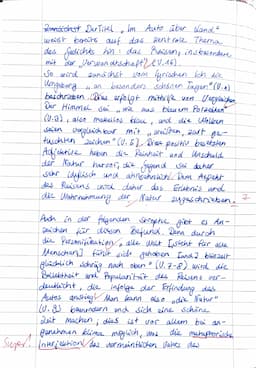 Der Titel „Im Auto über Land"
weist bereits auf das zentrale Thema
des Gedichts hin: das Reisen, insbesondere
mit der „Verwandtschaft" (V. 16).
So wird zunächst vom lyrischen Ich die
Umgebung „an besonders schönen Tagen" (V. 1)
beschrieben. Dies erfolgt mithilfe von Vergleichen.
Der Himmel sei „wie aus blauem Porzellan"
(V. 2), also makellos blau, und die Wolken
seien vergleichbar mit „weißen, zart ge-
tuschten Zeichen" (V. ). Diese positiv besetzten
Adjektive heben die Reinheit und Unschuld
der Natur hervor; die Gegend sei daher
sehr idyllisch und Dem Aspekt
des Reisens wird daher das Erlebnis und
die Wahrnehmung der Natur zugeschrieben.
Auch in der folgenden Strophe gibt es An-
zeichen für diesen Befund. Denn durch
die Personifikation „alle Welt [steht für alle
Menschen] fühlt sich gehoben [und] blinzelt
glücklich schräg nach oben" (V. 7-8) wird die
Beliebtheit und Popularität des Reisens ver-
deutlicht, die infolge der Erfindung des
Autos anstieg. Man kann also „die Natur"
(V. 9) bewundern und sich eine schöne
Zeit machen; dies ist vor allem bei an-
genehmem Klima möglich, was die metaphorische
Super! Interjektion des vermeintlichen Vaters des